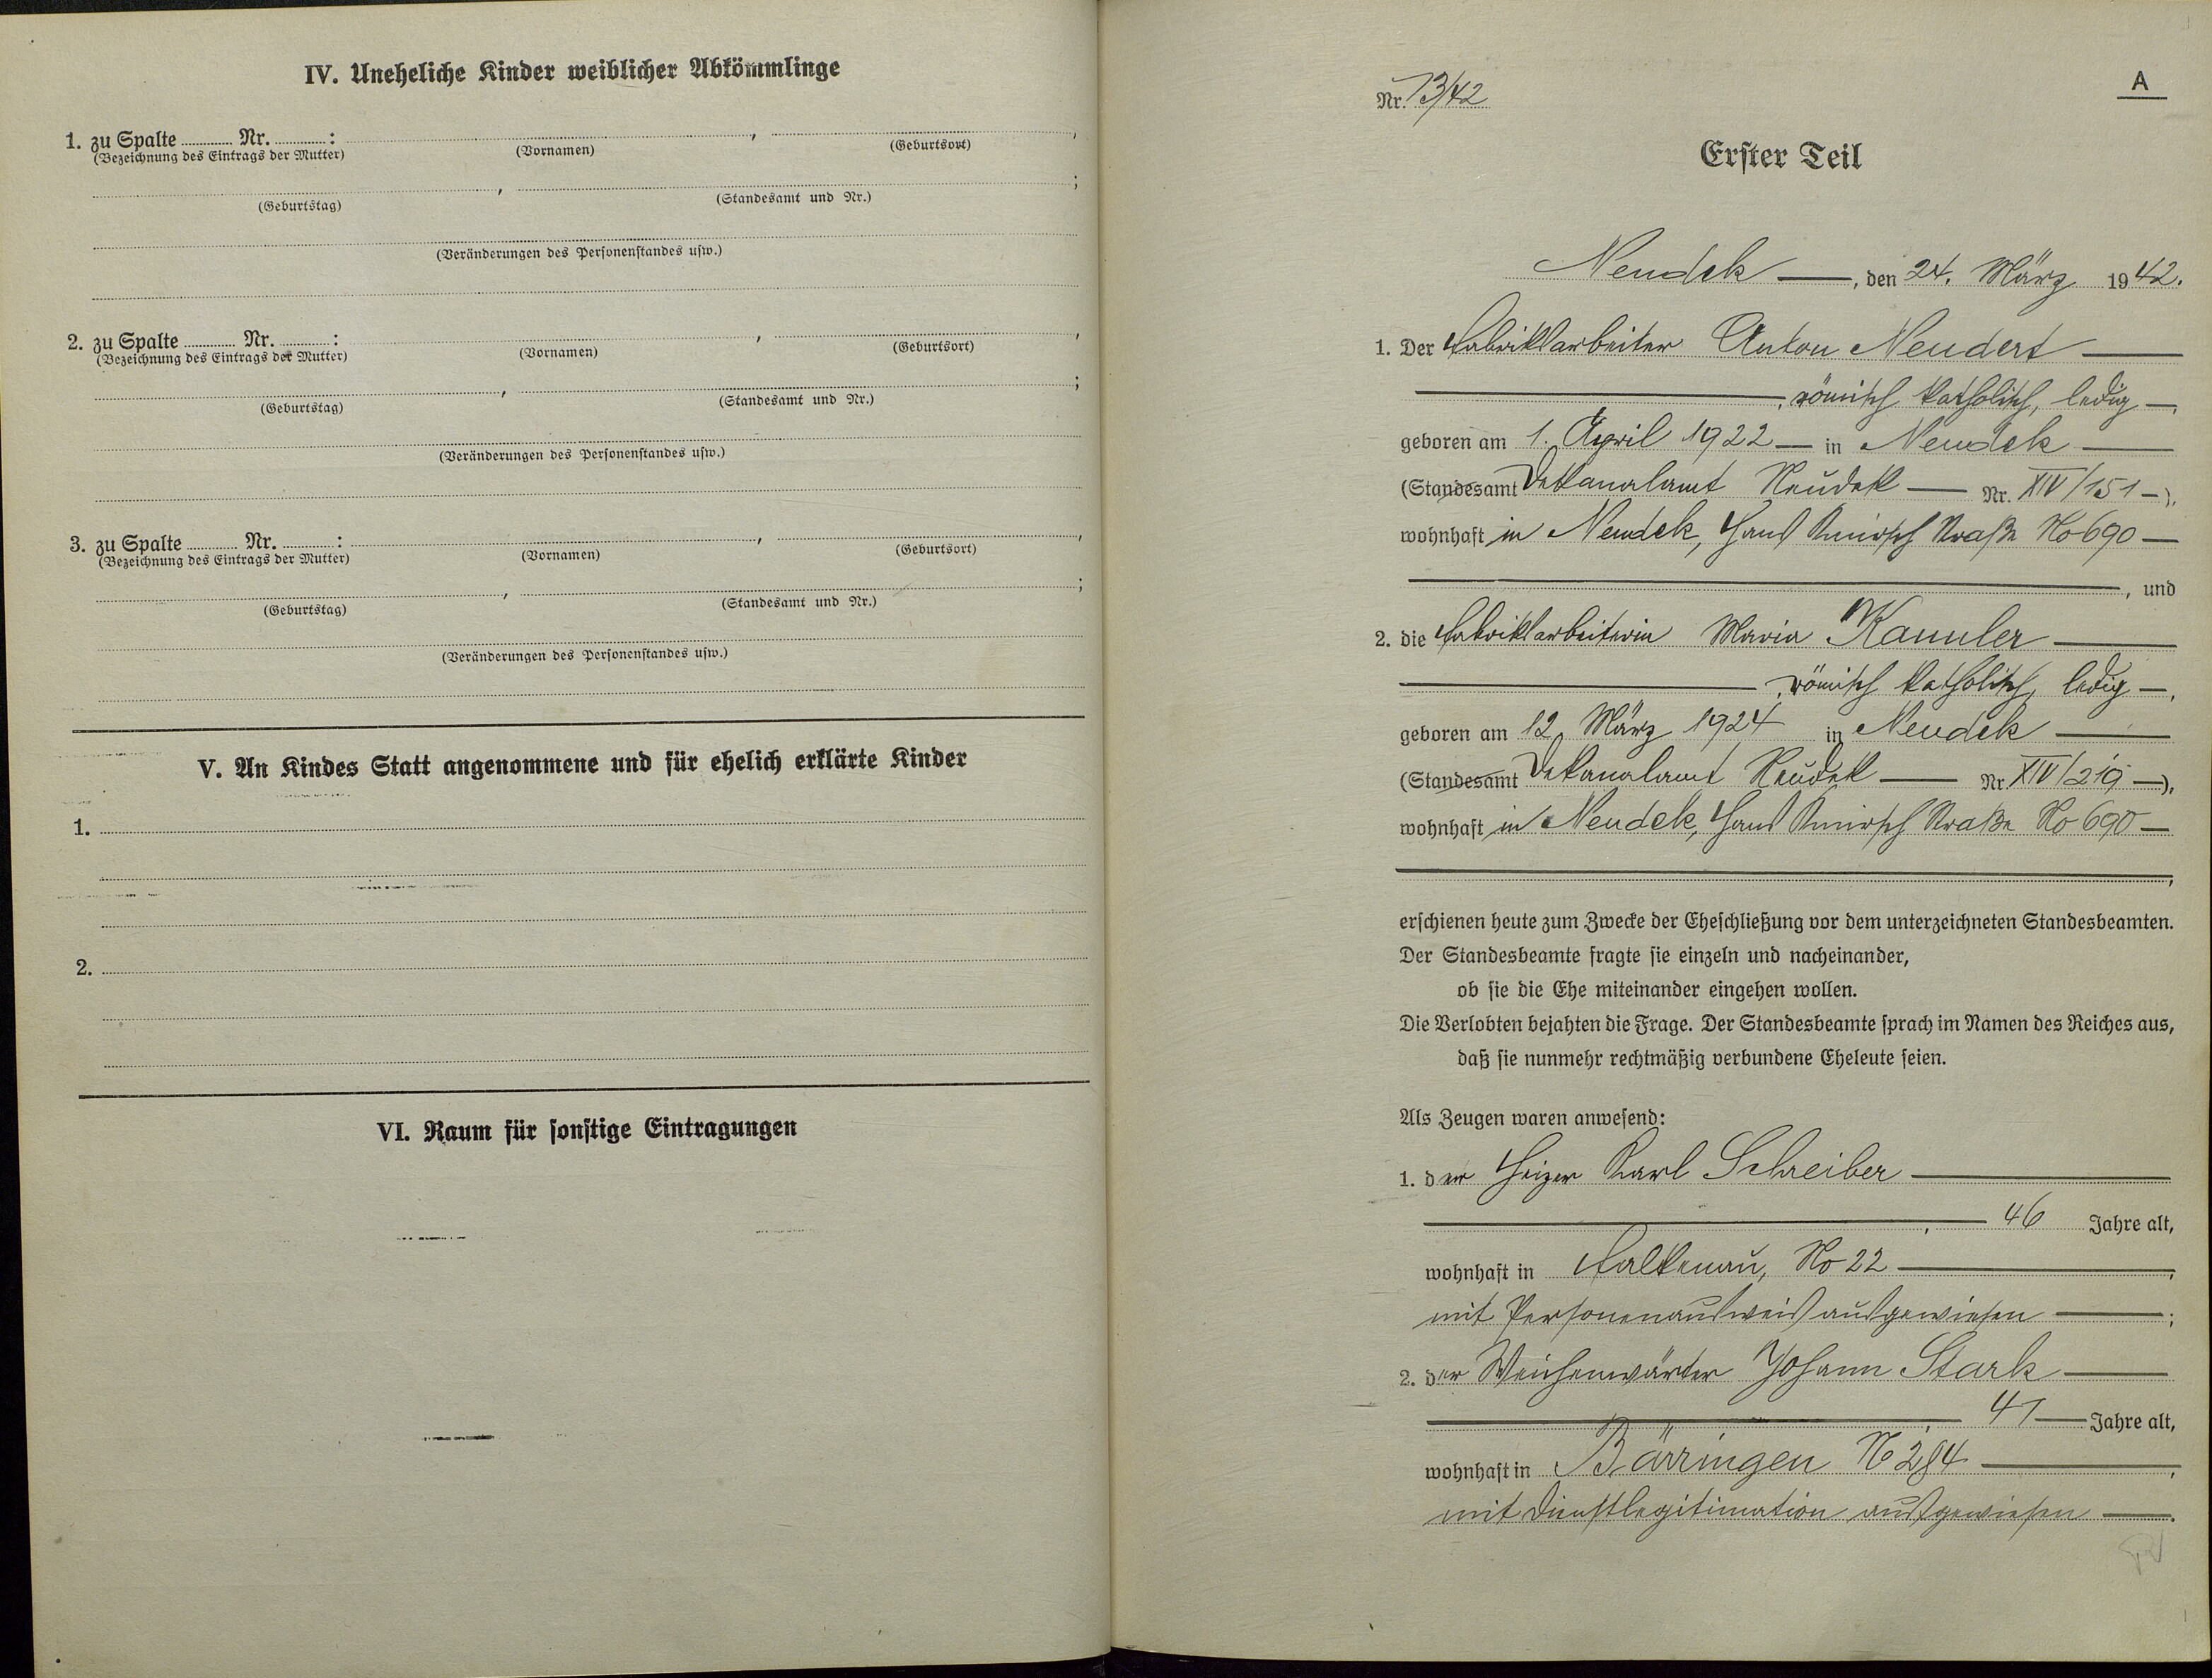 IV. Uneheliche Kinder weiblicher Abkömmlinge
1. zu Spalte ........ Nr. ........ :
(Bezeichnung des Eintrags der Mutter) (Vornamen) (Geburtsort)
(Geburtstag) (Standesamt und Nr.)
(Veränderungen des Personenstandes usw.)
2. zu Spalte ........ Nr. ........ :
(Bezeichnung des Eintrags der Mutter) (Vornamen) (Geburtsort)
(Geburtstag) (Standesamt und Nr.)
(Veränderungen des Personenstandes usw.)
3. zu Spalte ........ Nr. ........ :
(Bezeichnung des Eintrags der Mutter) (Vornamen) (Geburtsort)
(Geburtstag) (Standesamt und Nr.)
(Veränderungen des Personenstandes usw.)
V. An Kindes Statt angenommene und für ehelich erklärte Kinder
1.
2.
VI. Raum für sonstige Eintragungen
A
Nr. 13/42
Erster Teil
Neudek —, den 24. März 1942.
1. Der Fabriksarbeiter Anton Neudert —
—, römisch katholisch, ledig —,
geboren am 1. April 1922 — in Neudek —
(Standesamt Dekanalamt Neudek — Nr. XIV/151 —),
wohnhaft in Neudek, Hans Knirsch Straße No 690 —
—, und
2. die Fabriksarbeiterin Maria Kammler —
—, römisch katholisch, ledig —,
geboren am 12. März 1924 in Neudek —
(Standesamt Dekanalamt Neudek — Nr. XIV/219 —),
wohnhaft in Neudek, Hans Knirsch Straße No 690 —
—,
erschienen heute zum Zwecke der Eheschließung vor dem unterzeichneten Standesbeamten.
Der Standesbeamte fragte sie einzeln und nacheinander,
ob sie die Ehe miteinander eingehen wollen.
Die Verlobten bejahten die Frage. Der Standesbeamte sprach im Namen des Reiches aus,
daß sie nunmehr rechtmäßig verbundene Eheleute seien.
Als Zeugen waren anwesend:
1. der Heizer Karl Schreiber —
—, — 46 Jahre alt,
wohnhaft in Falkenau, No 22 —,
mit Personenausweis ausgewiesen —;
2. der Weichenwärter Johann Stark —
—, 41 — Jahre alt,
wohnhaft in Bärringen No 284 —,
mit Dienstlegitimation ausgewiesen —.